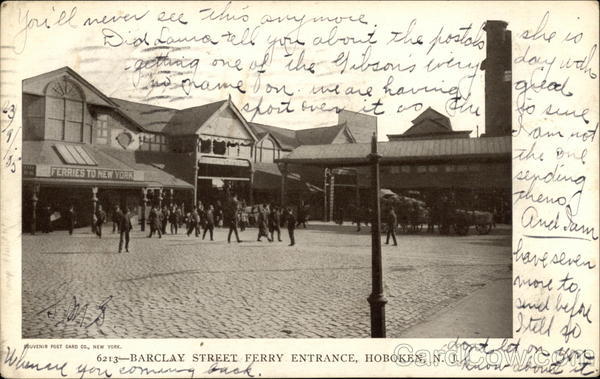 You'll never see this anymore
Did Laura tell you about the postals
getting one of the Gibson's every
no name on. we are having
sport over it as the
she is
day wak
great
is sure
I am not
the one
sending
them.
And I am
have seven
more to
send before
I tell so
dont let on you
know about it
5/9/05
FERRIES TO NEW YORK
SOUVENIR POST CARD CO., NEW YORK.
6213—BARCLAY STREET FERRY ENTRANCE, HOBOKEN, N. J.
When are you coming back.
CardCow.com